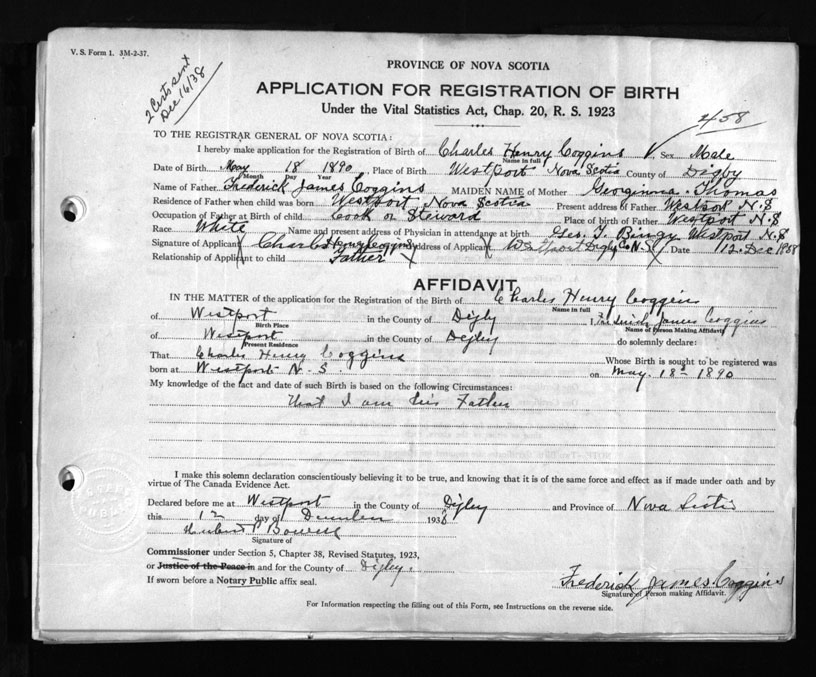 V. S. Form 1. 3M-2-37.
2 Certs sent
Dec 16/38
PROVINCE OF NOVA SCOTIA
APPLICATION FOR REGISTRATION OF BIRTH
Under the Vital Statistics Act, Chap. 20, R. S. 1923
458
TO THE REGISTRAR GENERAL OF NOVA SCOTIA:
I hereby make application for the Registration of Birth of Charles Henry Coggins Sex Male
Name in full
Date of Birth May 18 1890 Place of Birth Westport Nova Scotia County of Digby
Month Day Year
Name of Father Frederick James Coggins MAIDEN NAME of Mother Georginna Thomas
Residence of Father when child was born Westport Nova Scotia Present address of Father Westport N.S
Occupation of Father at Birth of child Cook or Steward Place of birth of Father Westport N.S
Race White Name and present address of Physician in attendance at birth Geo. Westport N.S
Signature of Applicant Charles Henry Coggins Address of Applicant Westport Digby Co N.S. Date 12. Dec 1938
Relationship of Applicant to child Father
AFFIDAVIT
IN THE MATTER of the application for the Registration of the Birth of Charles Henry Coggins
Name in full
of Westport in the County of Digby I, Fredrick James Coggins
Birth Place Name of Person Making Affidavit
of Westport in the County of Digby do solemnly declare:
Present Residence
That Charles Henry Coggins Whose Birth is sought to be registered was
born at Westport N. S on May. 18th 1890
My knowledge of the fact and date of such Birth is based on the following Circumstances:
that I am his Father
I make this solemn declaration conscientiously believing it to be true, and knowing that it is of the same force and effect as if made under oath and by
virtue of The Canada Evidence Act.
Declared before me at Westport in the County of Digby and Province of Nova Scotia
this 12 day of December 1938
Signature of
Commissioner under Section 5, Chapter 38, Revised Statutes, 1923,
or Justice of the Peace in and for the County of Digby.
If sworn before a Notary Public affix seal.
Frederick James Coggins
Signature of Person making Affidavit.
For Information respecting the filling out of this Form, see Instructions on the reverse side.